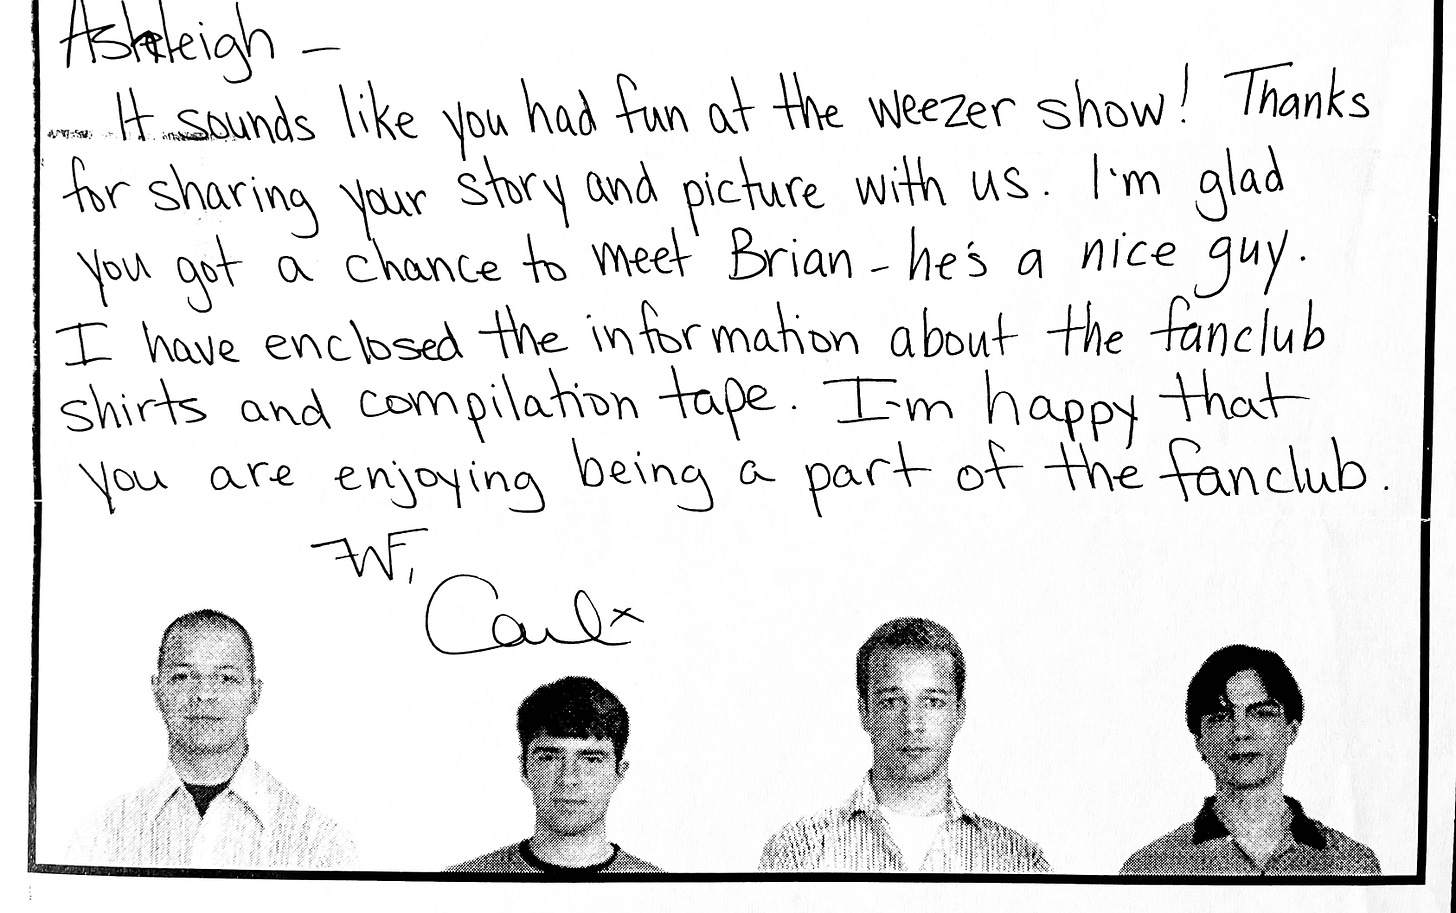 Ashleigh –
It sounds like you had fun at the weezer show! Thanks
for sharing your story and picture with us. I'm glad
you got a chance to meet Brian – he's a nice guy.
I have enclosed the information about the fanclub
shirts and compilation tape. I'm happy that
you are enjoying being a part of the fanclub.
=W=,